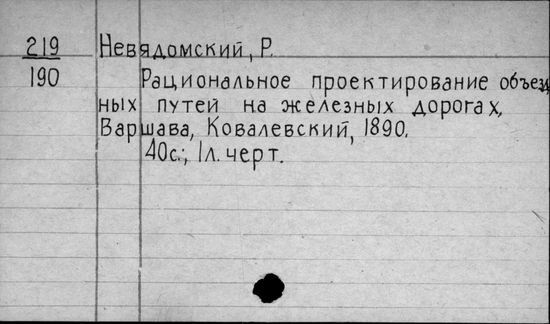 219 Невядомский, Р.
190 Рациональное проектирование объезд
ных путей на железных дорогах,
Варшава, Ковалевский, 1890.
40с.; 1л. черт.